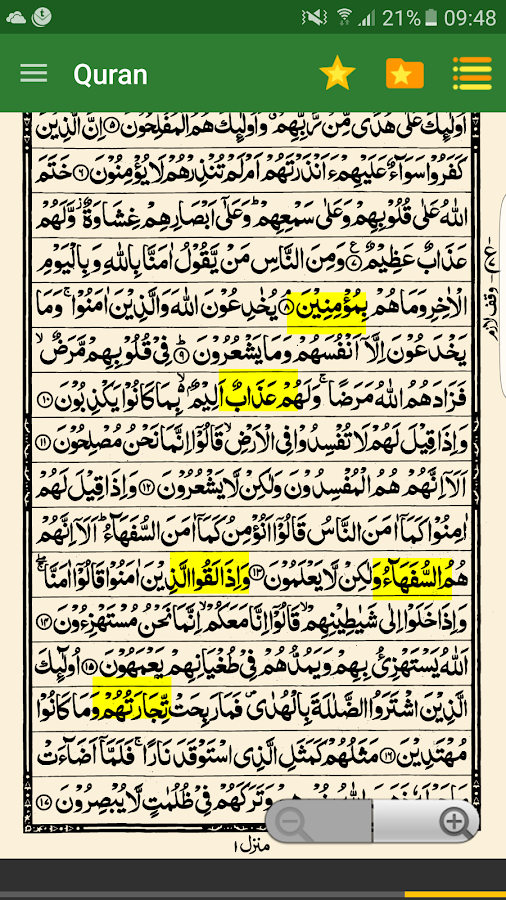 21% 09:48
Quran
اُولٰٓئِكَ عَلٰى هُدًى مِّنْ رَّبِّهِمْ وَاُولٰٓئِكَ هُمُ الْمُفْلِحُوْنَ ۵ اِنَّ الَّذِيْنَ
كَفَرُوْا سَوَآءٌ عَلَيْهِمْ ءَاَنْذَرْتَهُمْ اَمْ لَمْ تُنْذِرْهُمْ لَا يُؤْمِنُوْنَ ۶ خَتَمَ
اللّٰهُ عَلٰى قُلُوْبِهِمْ وَعَلٰى سَمْعِهِمْ ؕ وَعَلٰٓى اَبْصَارِهِمْ غِشَاوَةٌ ز وَّلَهُمْ
عَذَابٌ عَظِيْمٌ ۷ وَمِنَ النَّاسِ مَنْ يَّقُوْلُ اٰمَنَّا بِاللّٰهِ وَبِالْيَوْمِ
الْاٰخِرِ وَمَا هُمْ بِمُؤْمِنِيْنَ ۸ يُخٰدِعُوْنَ اللّٰهَ وَالَّذِيْنَ اٰمَنُوْا ۚ وَمَا
يَخْدَعُوْنَ اِلَّآ اَنْفُسَهُمْ وَمَا يَشْعُرُوْنَ ۹ فِيْ قُلُوْبِهِمْ مَّرَضٌ ۙ
فَزَادَهُمُ اللّٰهُ مَرَضًا ۚ وَلَهُمْ عَذَابٌ اَلِيْمٌ ۙ بِمَا كَانُوْا يَكْذِبُوْنَ ۱۰
وَاِذَا قِيْلَ لَهُمْ لَا تُفْسِدُوْا فِي الْاَرْضِ ۙ قَالُوْٓا اِنَّمَا نَحْنُ مُصْلِحُوْنَ ۱۱
اَلَآ اِنَّهُمْ هُمُ الْمُفْسِدُوْنَ وَلٰكِنْ لَّا يَشْعُرُوْنَ ۱۲ وَاِذَا قِيْلَ لَهُمْ
اٰمِنُوْا كَمَآ اٰمَنَ النَّاسُ قَالُوْٓا اَنُؤْمِنُ كَمَآ اٰمَنَ السُّفَهَآءُ ؕ اَلَآ اِنَّهُمْ
هُمُ السُّفَهَآءُ وَلٰكِنْ لَّا يَعْلَمُوْنَ ۱۳ وَاِذَا لَقُوا الَّذِيْنَ اٰمَنُوْا قَالُوْٓا اٰمَنَّا ۚۖ
وَاِذَا خَلَوْا اِلٰى شَيٰطِيْنِهِمْ ۙ قَالُوْٓا اِنَّا مَعَكُمْ ۙ اِنَّمَا نَحْنُ مُسْتَهْزِءُوْنَ ۱۴
اَللّٰهُ يَسْتَهْزِئُ بِهِمْ وَيَمُدُّهُمْ فِيْ طُغْيَانِهِمْ يَعْمَهُوْنَ ۱۵ اُولٰٓئِكَ
الَّذِيْنَ اشْتَرَوُا الضَّلٰلَةَ بِالْهُدٰى ۪ فَمَا رَبِحَتْ تِّجَارَتُهُمْ وَمَا كَانُوْا
مُهْتَدِيْنَ ۱۶ مَثَلُهُمْ كَمَثَلِ الَّذِى اسْتَوْقَدَ نَارًا ۚ فَلَمَّآ اَضَآءَتْ
وَتَرَكَهُمْ فِيْ ظُلُمٰتٍ لَّا يُبْصِرُوْنَ ۱۷
وقف لازم
منزل ۱